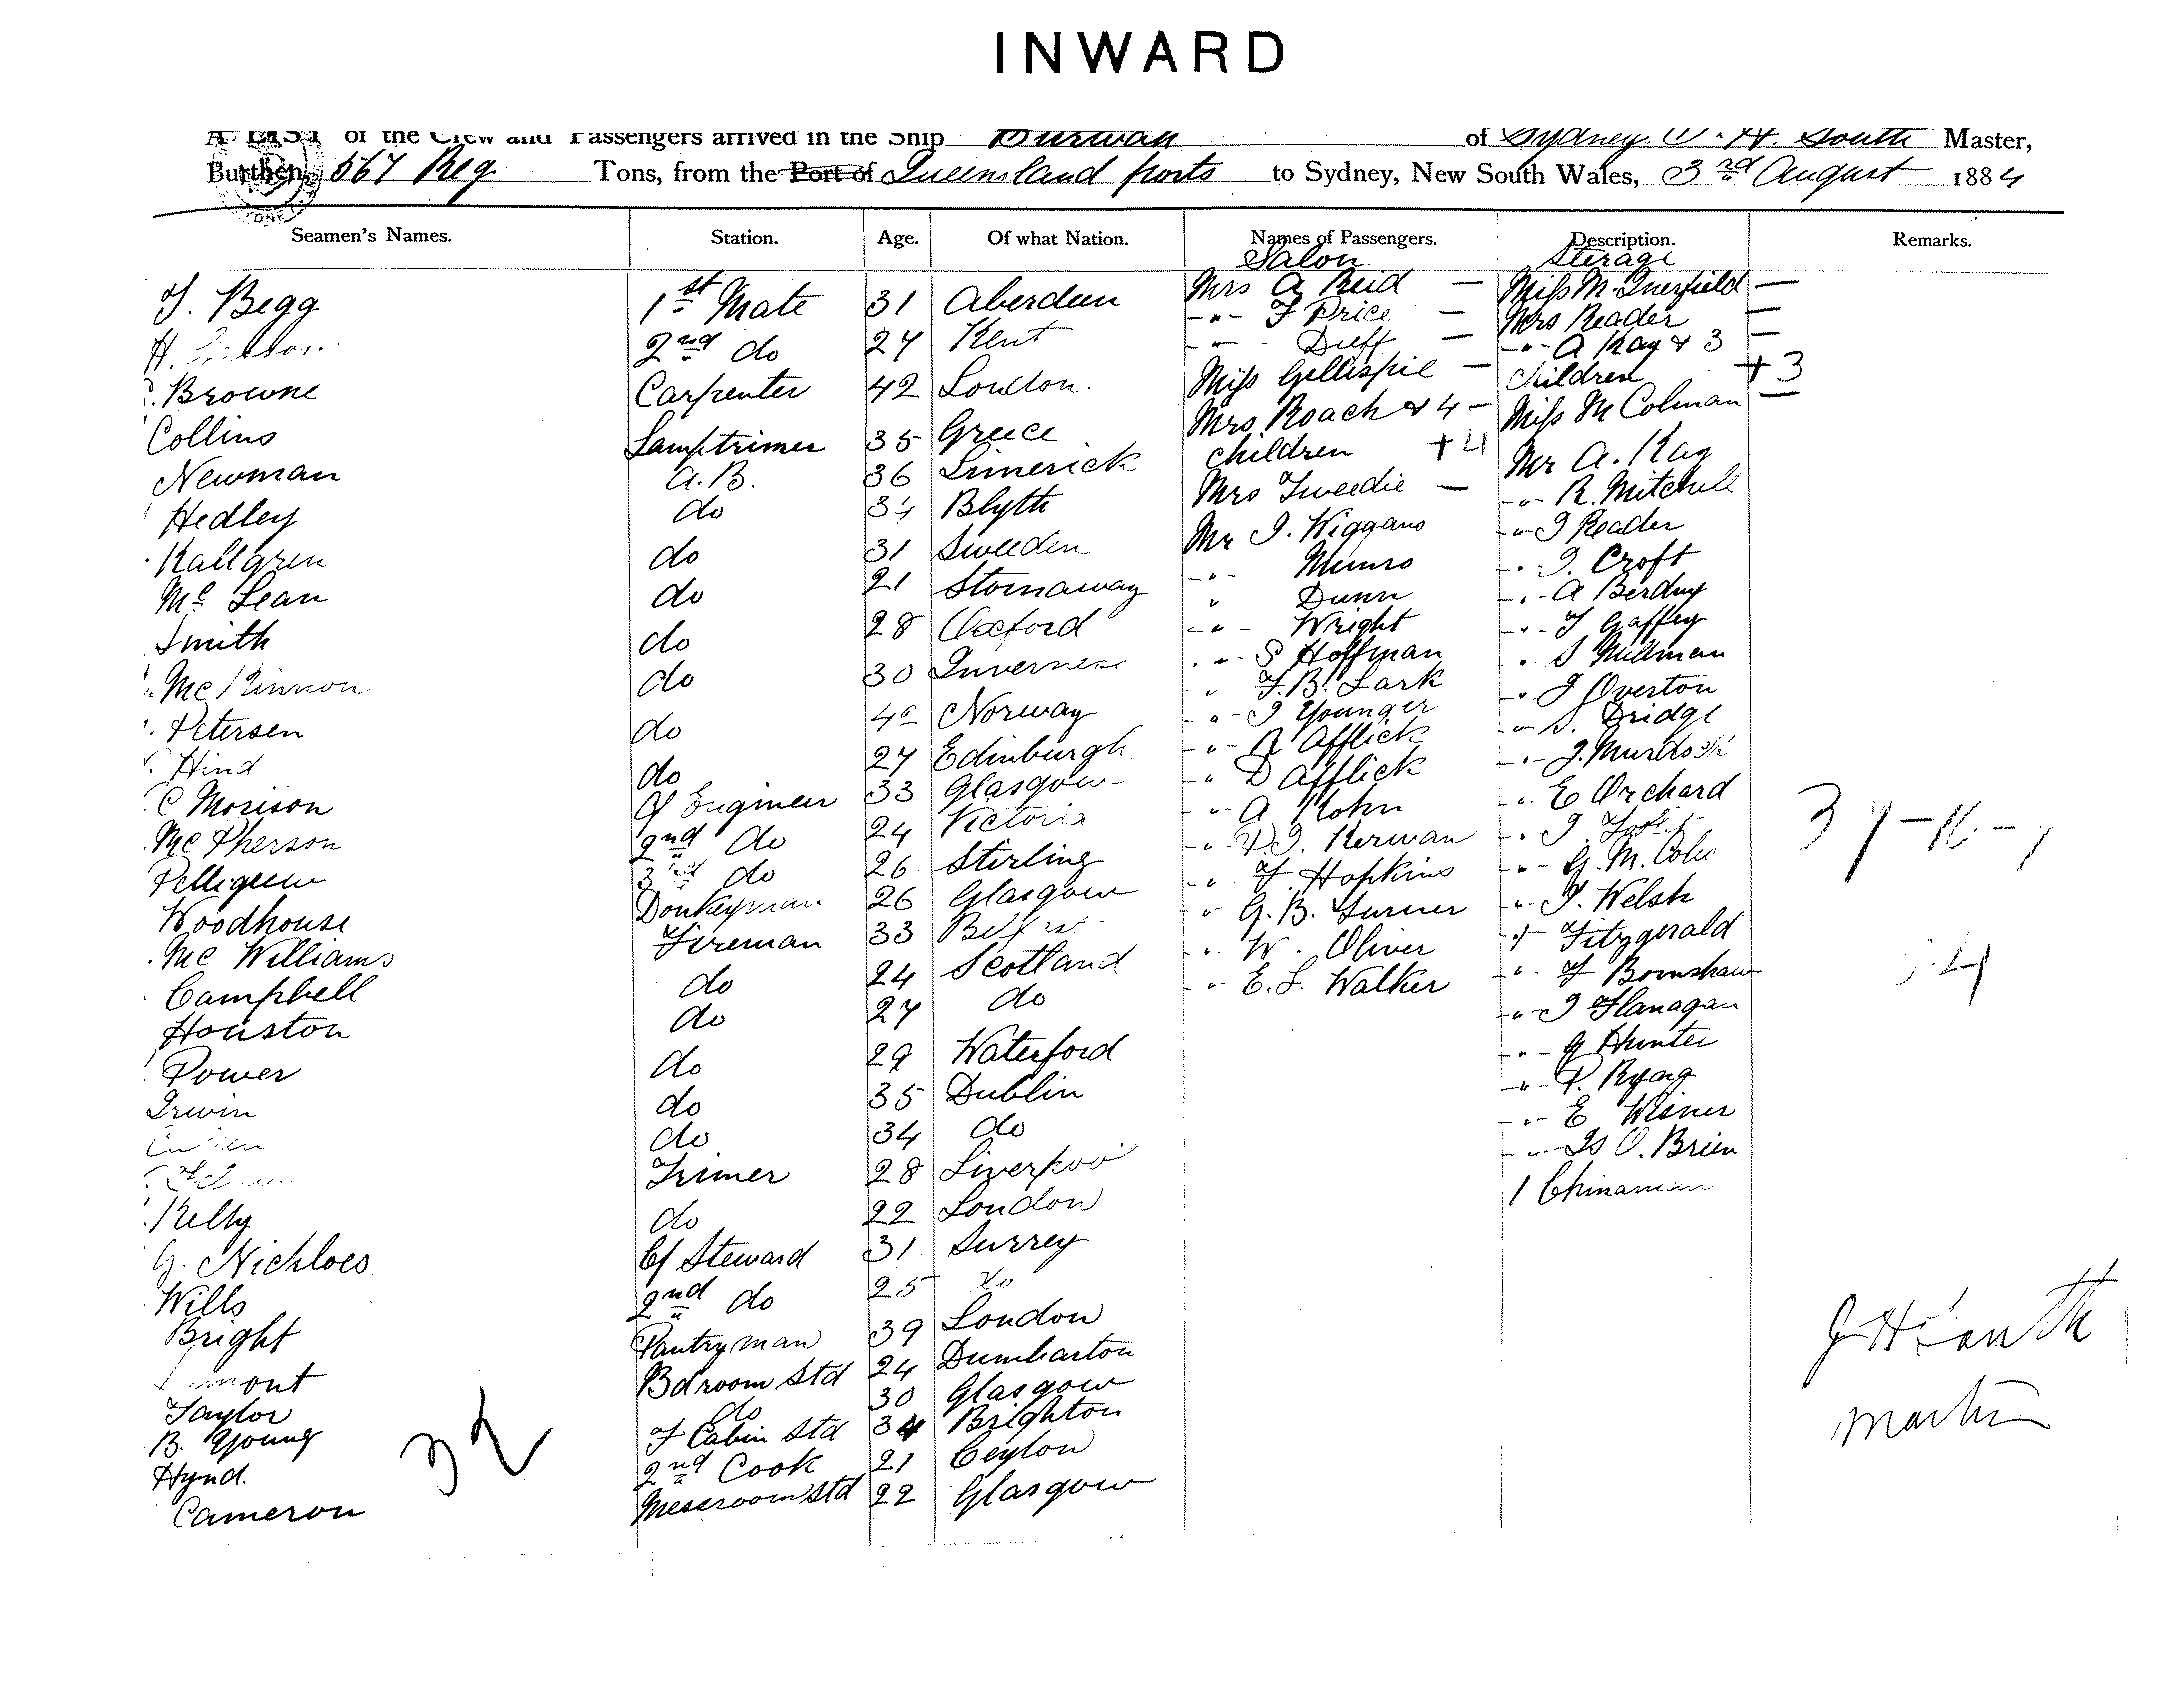 INWARD
A LIST of the Crew and Passengers arrived in the Ship Burwah of Sydney W. H. South Master,
Burthen, 567 Reg Tons, from the Port of Queensland ports to Sydney, New South Wales, 3rd August 1884
Seamen's Names. Station. Age. Of what Nation. Names of Passengers. Description. Remarks.
Salon Sterage
Begg 1st Mate 31 Aberdeen Mrs A Reid — Miss M. —
H. 2nd do 27 Kent -"- F Price — Mrs Reader —
Browne Carpenter 42 London. -"- Duff — -"- A Kay & 3 —
Collins Lamptrimer 35 Greece Miss Gellispie — children + 3
Newman A.B. 36 Limerick Mrs Roach & 4 — Miss M Colman —
Hedley do 34 Blyth children + 4 Mr A. Kay
Kallgren do 31 Sweeden Mrs Tweedie — -"- R. Mitchell
Mc Lean do 21 Stornaway Mr J. Wiggans -"- J Reader
Smith do 28 Oxford -"- Munro -"- J. Croft
Mc Kinnon do 30 Inverness " Dunn -"- A
Petersen do Norway -"- Wright -"- Gaffey
Hind do 27 Edinburgh -"- S Hoffman " S Millman
C Morison Cf Engineer 33 Glasgow " F. B. Lark -"- J Overton
Mc Pherson 2nd do 24 Victoria -"- J Younger -"- S. Bridge
Pelligrew 3rd do 26 Sterling -"- R Afflick -"- J. Murdoch
Woodhouse Donkeyman 26 Glasgow -" D Afflick -"- E Orchard
Mc Williams Fireman 33 -"- A Kohn -"- J.
Campbell do 24 Scotland -"- Kerwan -"- G. M.
Houston do 27 do -"- F. Hopkins -"- J. Welsh
Power do 29 Waterford -"- G. B. Turner Fitzgerald
Irwin do 35 Dublin -"- W. Oliver -"- Bornshaw
do 34 do -"- E. L. Walker -"- J Flanagan
Trimer 28 Liverpool -"- G Hunter
Kelly do 22 London -"- P.
G. Nichloes Cf Steward 31 Surrey -"- E Wisner
Wills 2nd do 25 do -"- O. Brien
Bright Pantryman 39 London 1 Chinaman
Bdroom Std 24 Dumbarton
Taylor do 30 Glasgow
B. Young F Cabin Std 34 Brighton
Hynd. 2nd Cook 21 Ceylon
Cameron Messroom Std 22 Glasgow